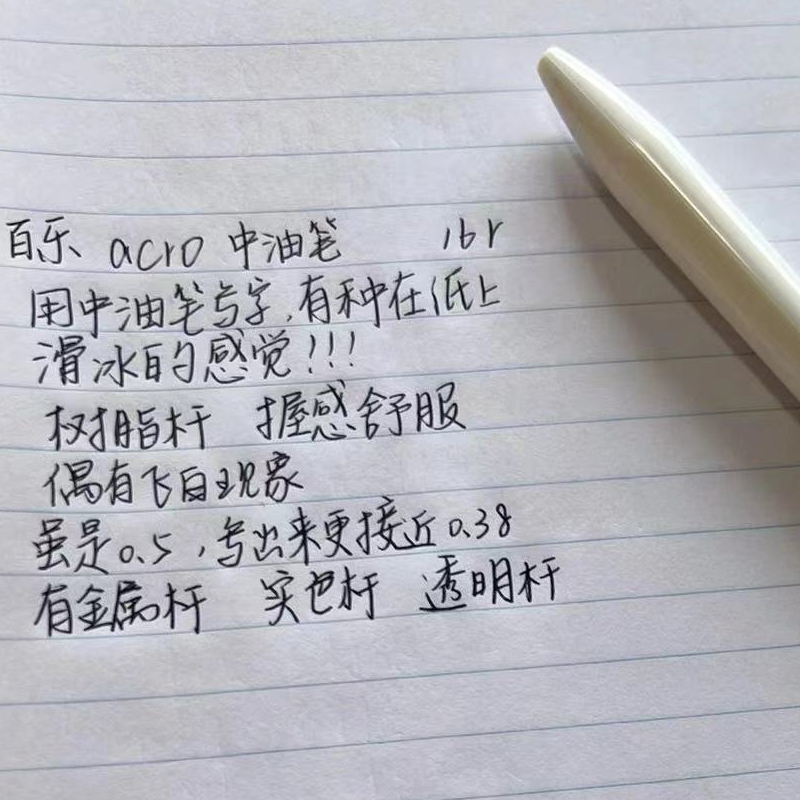 百乐 acro 中油笔 16r
用中油笔写字,有种在纸上
滑冰的感觉!!!
树脂杆 握感舒服
偶有飞白现象
虽是0.5,写出来更接近0.38
有金属杆 实色杆 透明杆